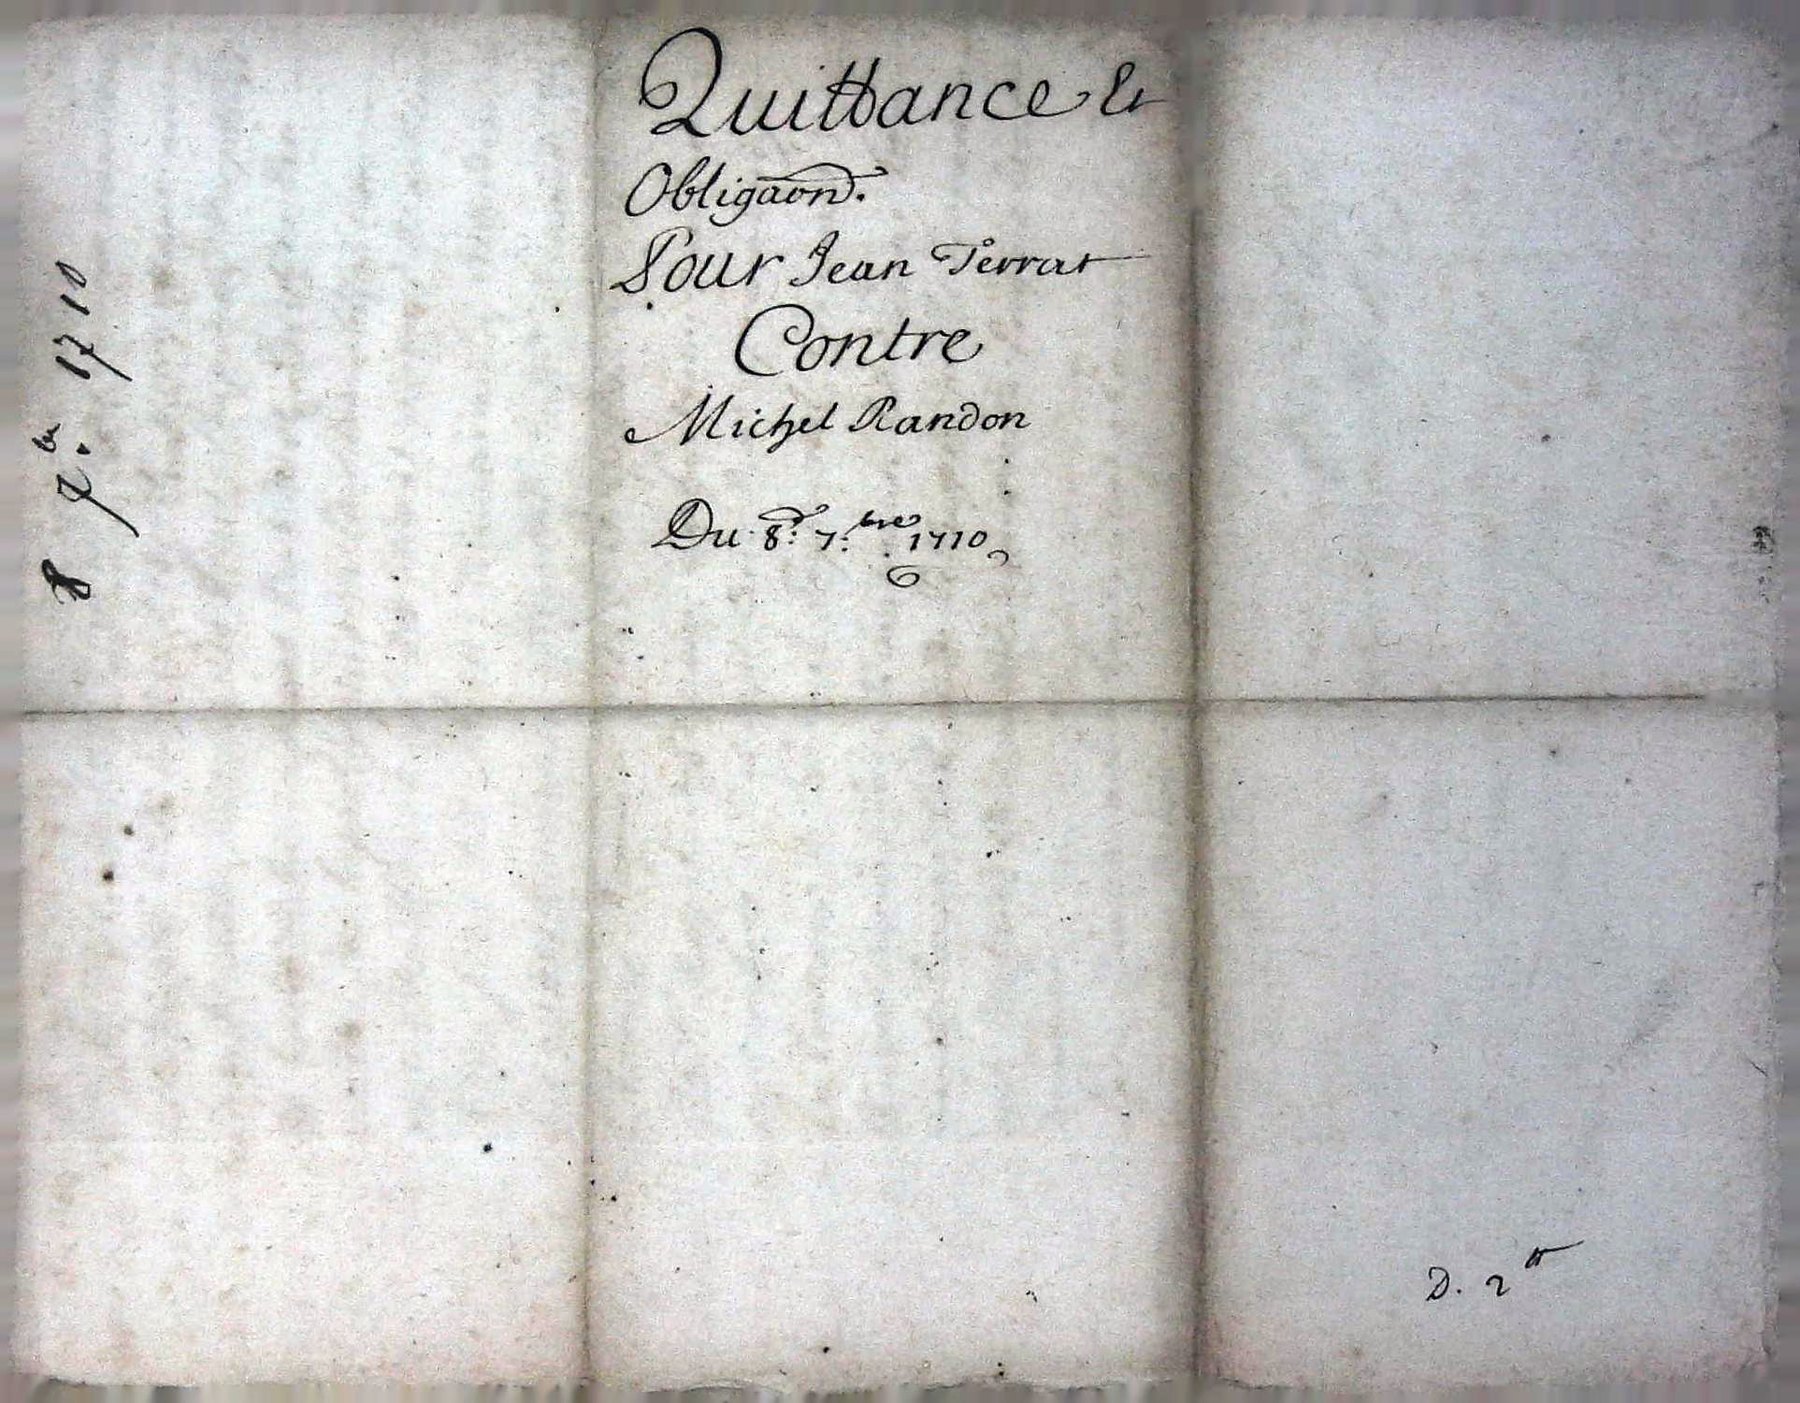 Quittance Et
Obligaõn.
Pour Jean Terrat
Contre
Michel Randon
Du 8.e 7.bre 1710
8 7.br 1710
D. 2tt